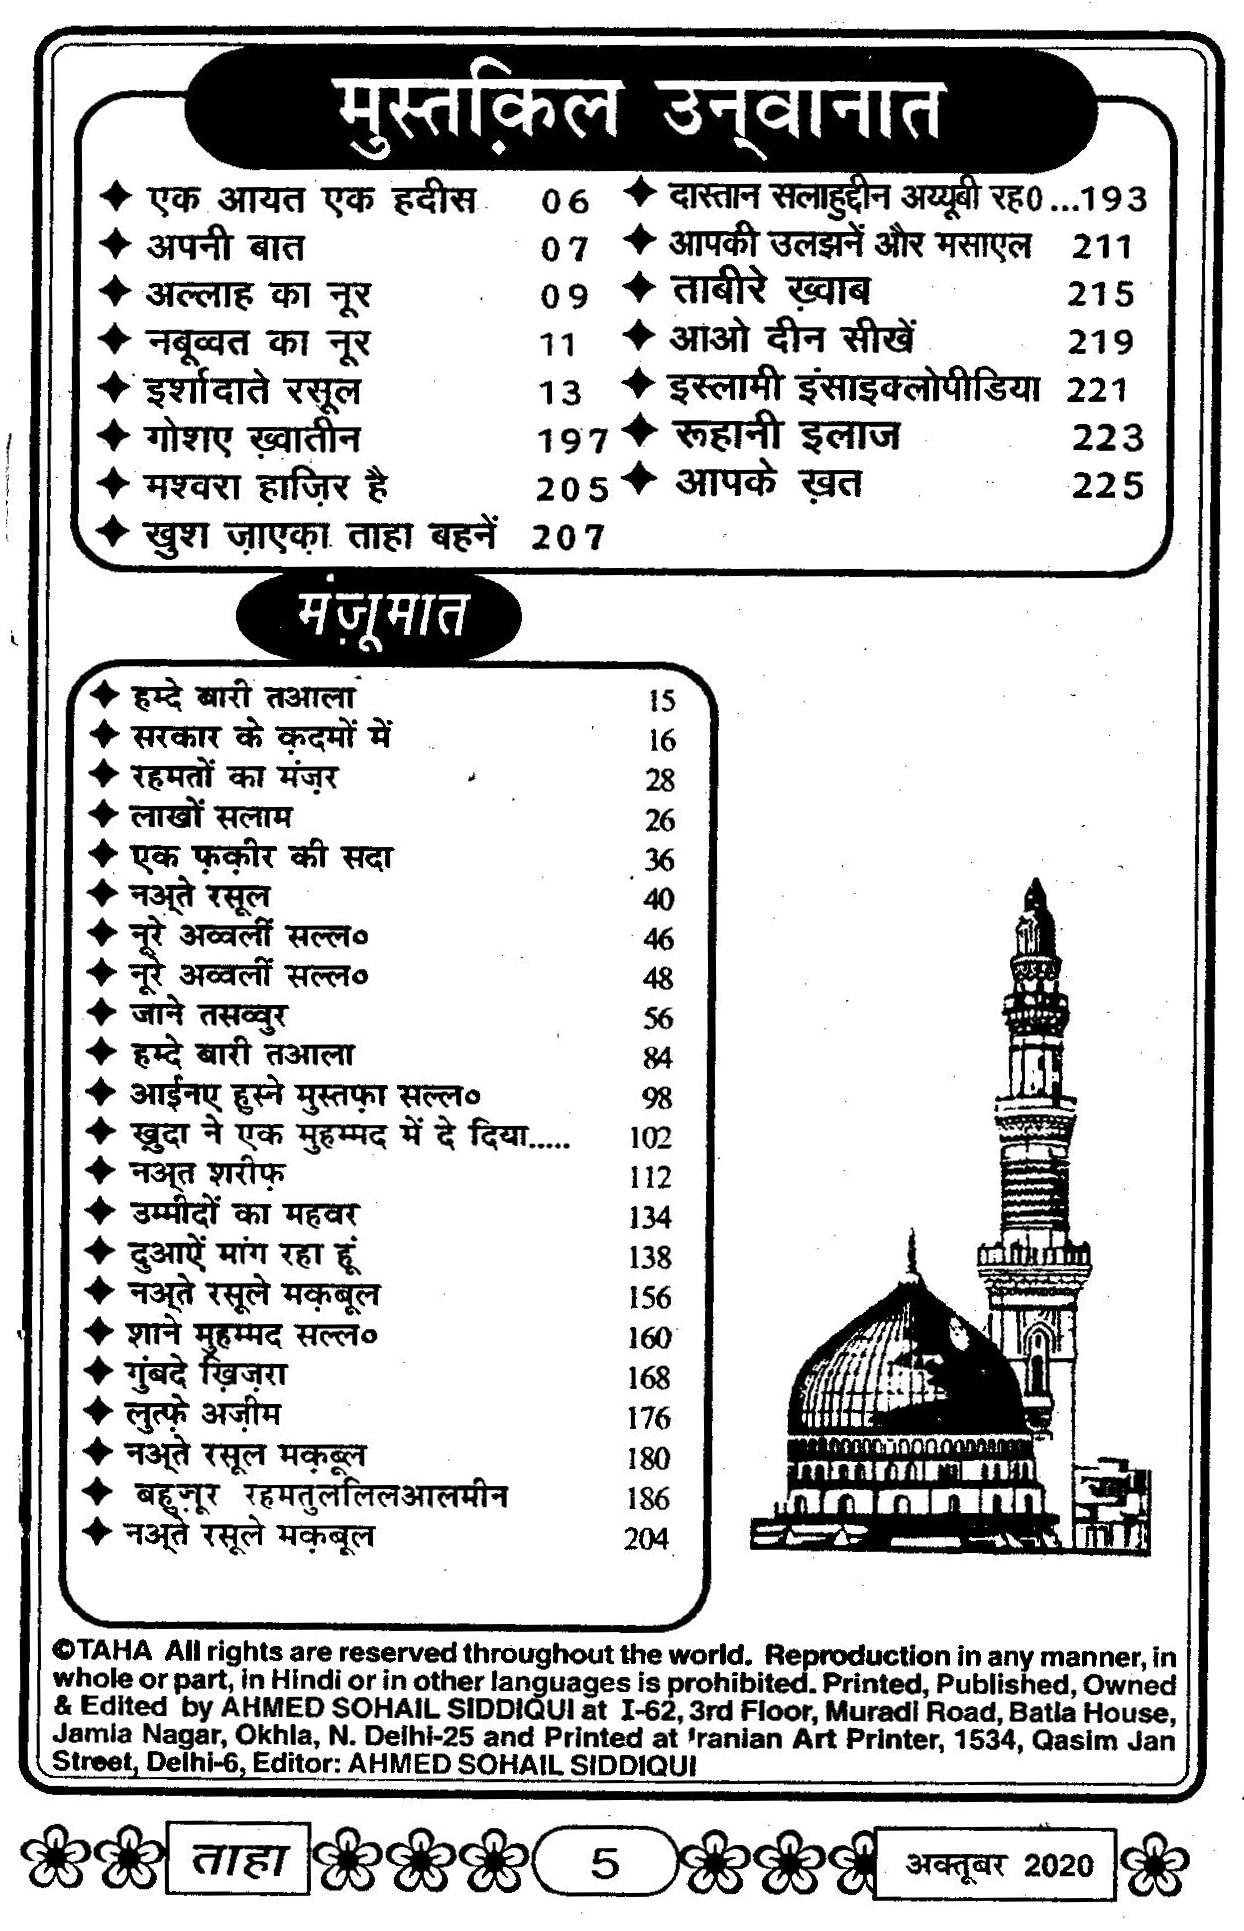 मुस्तक़िल उन्वानात
एक आयत एक हदीस 06
अपनी बात 07
अल्लाह का नूर 09
नबूव्वत का नूर 11
इर्शादाते रसूल 13
गोशए ख़्वातीन 197
मश्वरा हाज़िर है 205
खुश ज़ाएक़ा ताहा बहनें 207
दास्तान सलाहुद्दीन अय्यूबी रह0 ...193
आपकी उलझनें और मसाएल 211
ताबीरे ख़्वाब 215
आओ दीन सीखें 219
इस्लामी इंसाइक्लोपीडिया 221
रूहानी इलाज 223
आपके ख़त 225
मंज़ूमात
हम्दे बारी तआला 15
सरकार के क़दमों में 16
रहमतों का मंज़र 28
लाखों सलाम 26
एक फ़क़ीर की सदा 36
नअ्ते रसूल 40
नूरे अव्वलीं सल्ल० 46
नूरे अव्वलीं सल्ल० 48
जाने तसव्वुर 56
हम्दे बारी तआला 84
आईनए हुस्ने मुस्तफ़ा सल्ल० 98
ख़ुदा ने एक मुहम्मद में दे दिया..... 102
नअ्त शरीफ़ 112
उम्मीदों का महवर 134
दुआऐं मांग रहा हूं 138
नअ्ते रसूले मक़बूल 156
शाने मुहम्मद सल्ल० 160
गुंबदे ख़िज़रा 168
लुत्फ़े अज़ीम 176
नअ्ते रसूल मक़बूल 180
बहुज़ूर रहमतुललिलआलमीन 186
नअ्ते रसूले मक़बूल 204
©TAHA All rights are reserved throughout the world. Reproduction in any manner, in
whole or part, in Hindi or in other languages is prohibited. Printed, Published, Owned
& Edited by AHMED SOHAIL SIDDIQUI at I-62, 3rd Floor, Muradi Road, Batla House,
Jamia Nagar, Okhla, N. Delhi-25 and Printed at Iranian Art Printer, 1534, Qasim Jan
Street, Delhi-6, Editor: AHMED SOHAIL SIDDIQUI
ताहा 5 अक्तूबर 2020